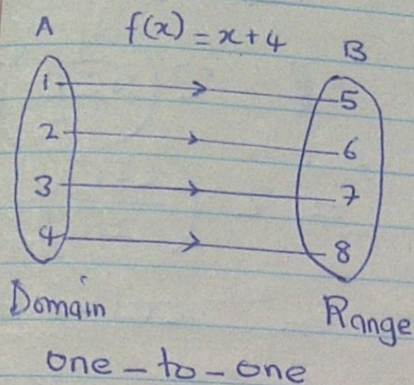 A f(x) = x+4 B
1 5
2 6
3 7
4 8
Domain Range
one-to-one